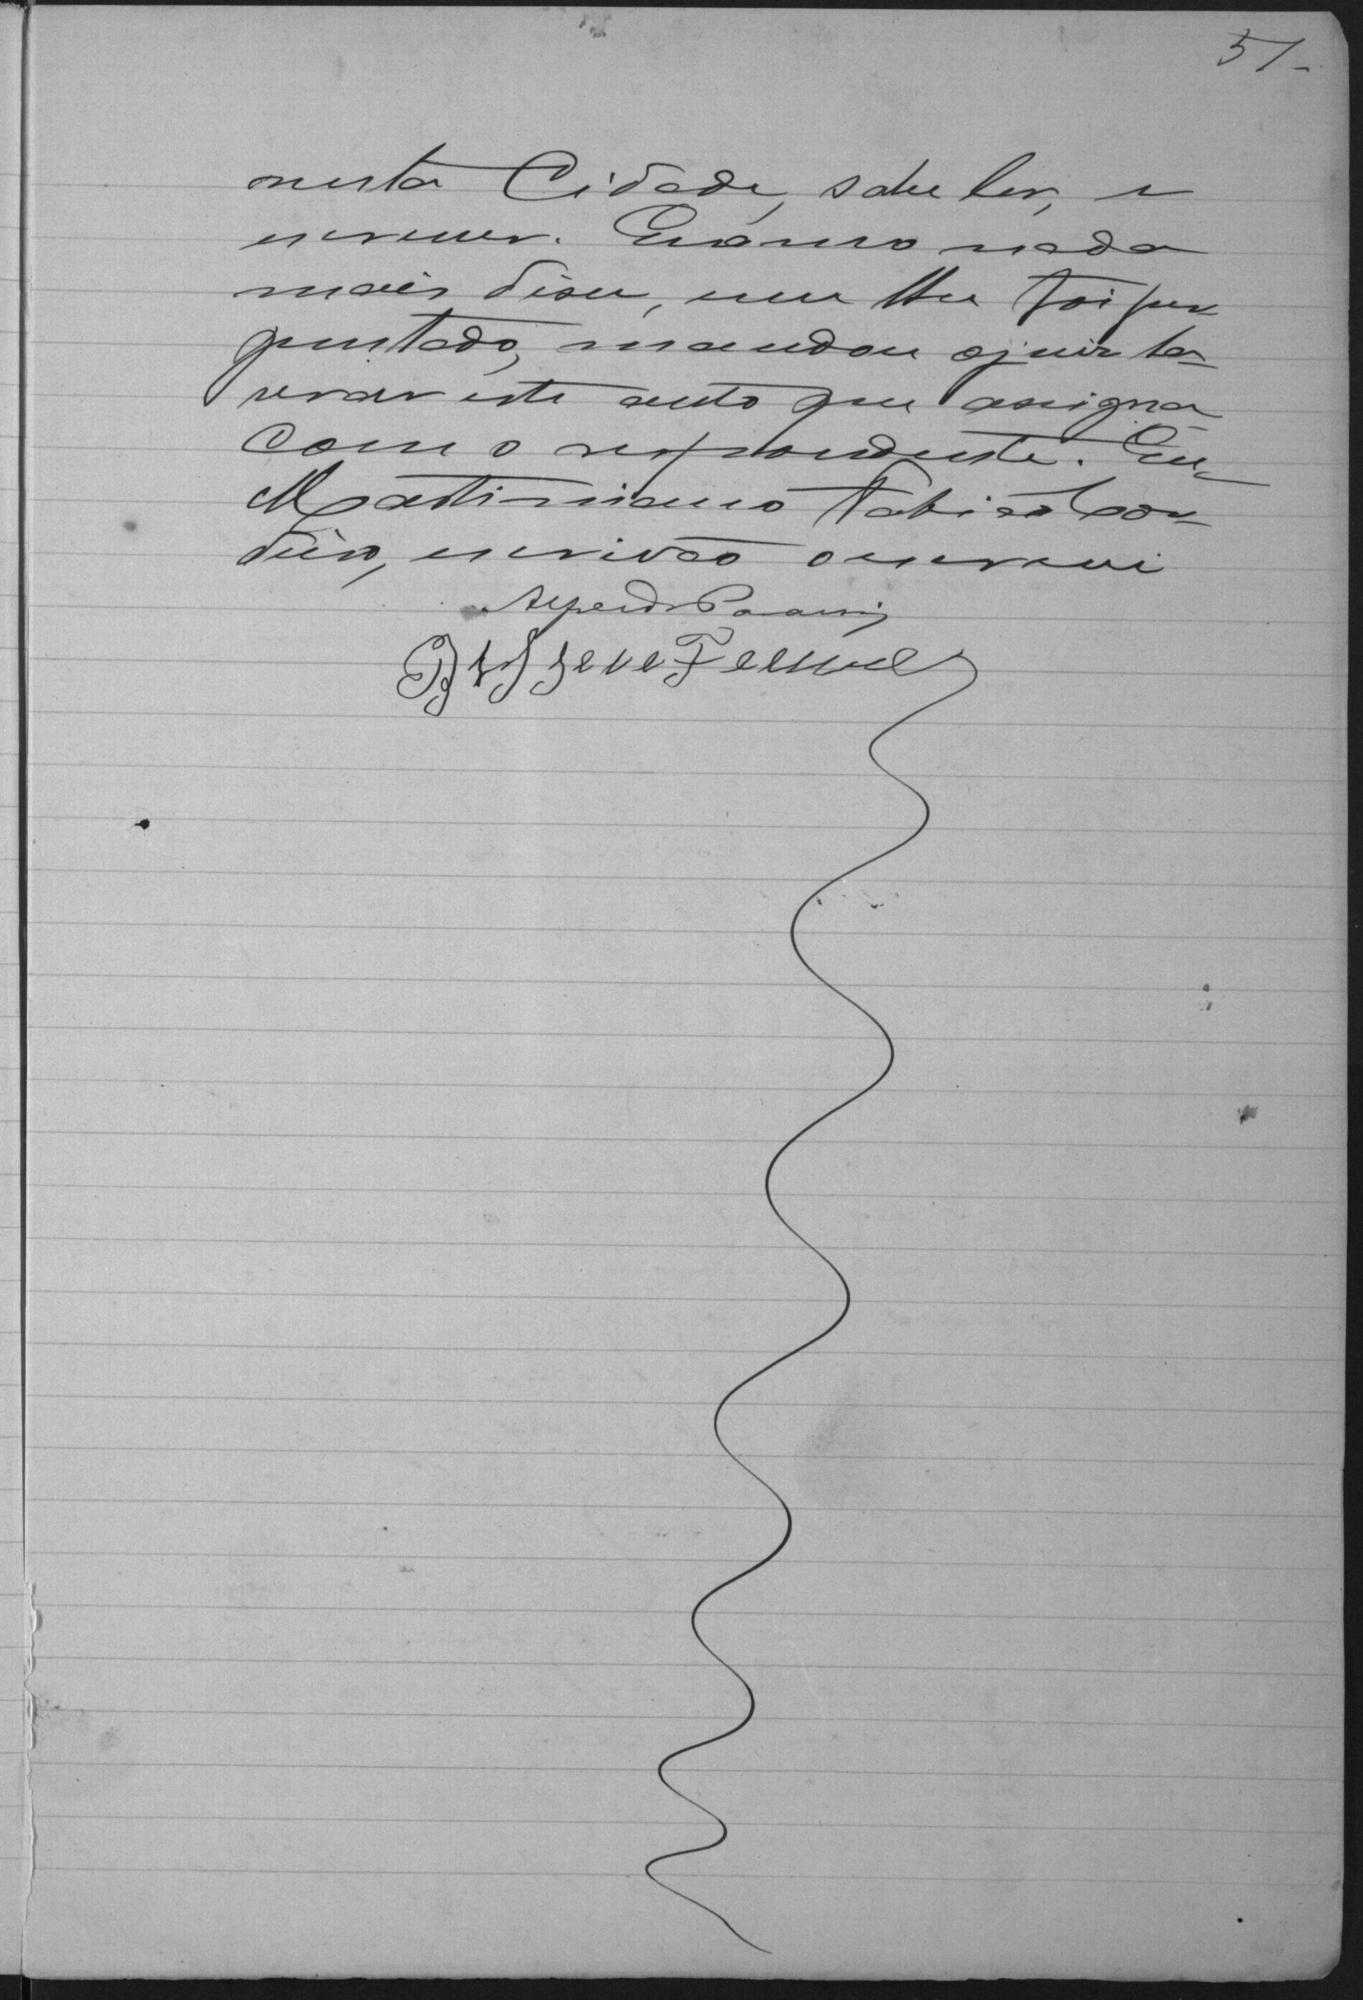 51-
nesta Cidade, sabe ler, e
escrever. E como nada
mais disse, nem lhe foi per
guntado, mandou o juiz la-
vrar este auto que assigna
com o respondente. Eu
Martimiano Fabiao Cor-
deiro, escrivão o escrevi
Alfredo